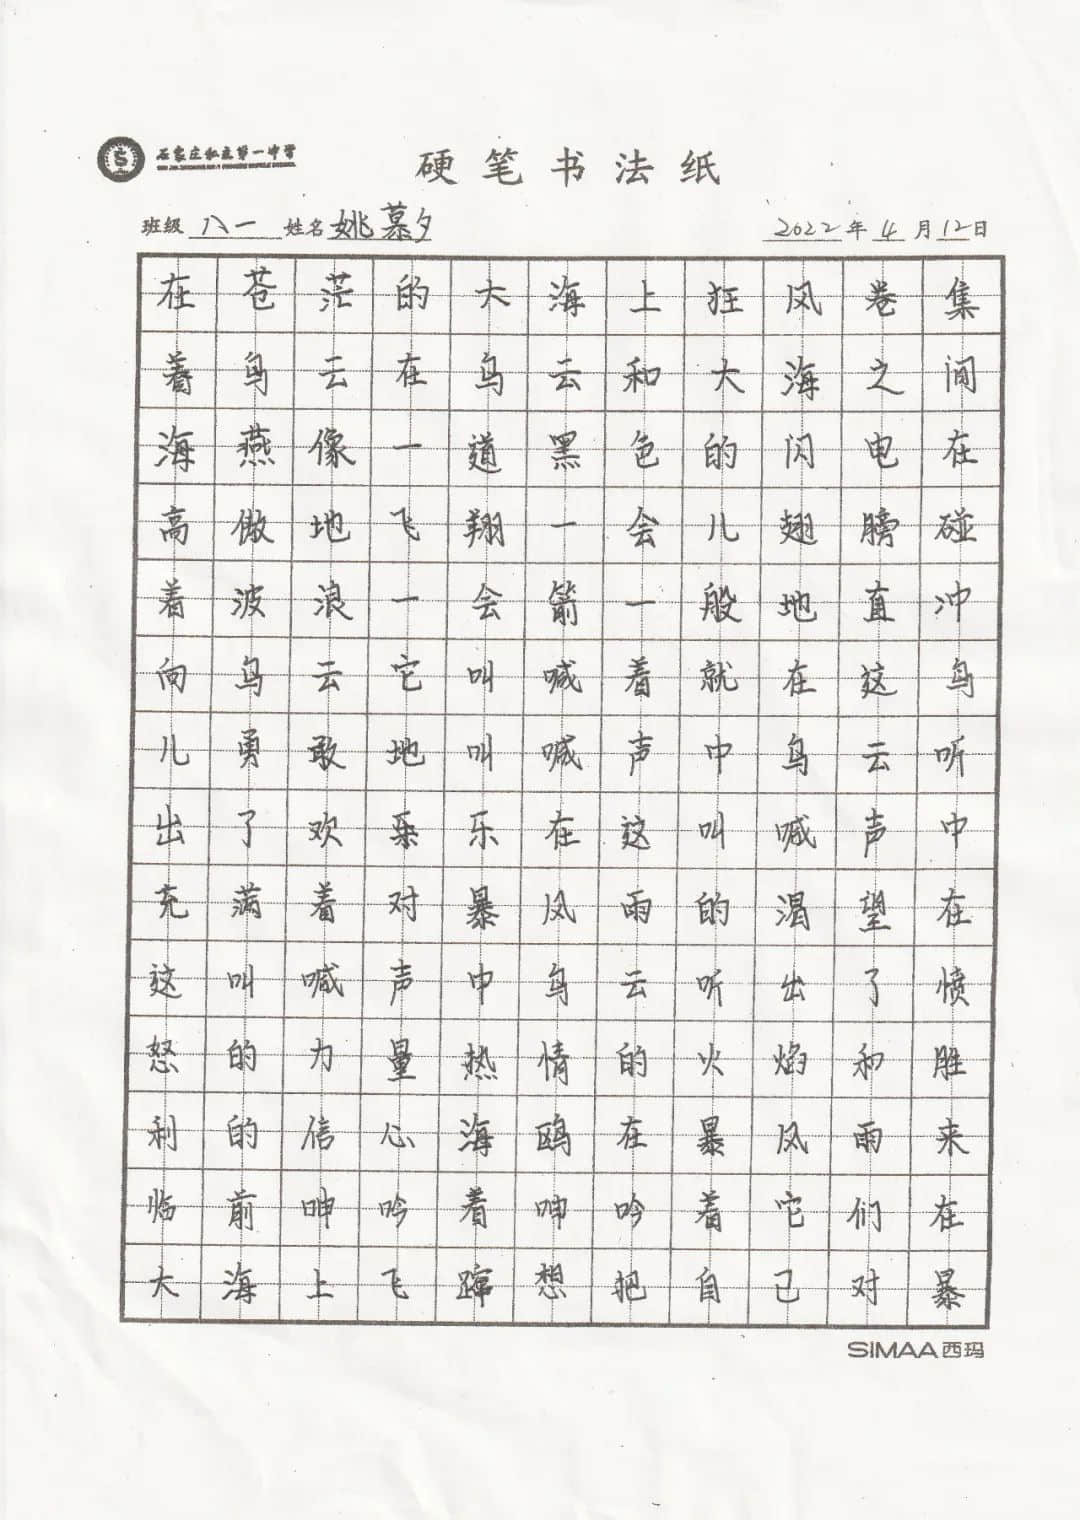 石家庄私立第一中学
硬笔书法纸
班级 八一 姓名 姚慕夕 2022年4月12日
在苍茫的大海上狂风卷集
着鸟云在鸟云和大海之间
海燕像一道黑色的闪电在
高傲地飞翔一会儿翅膀碰
着波浪一会箭一般地直冲
向鸟云它叫喊着就在这鸟
儿勇敢地叫喊声中鸟云听
出了欢乐乐在这叫喊声中
充满着对暴风雨的渴望在
这叫喊声中鸟云听出了愤
怒的力量热情的火焰和胜
利的信心海鸥在暴风雨来
临前呻吟着呻吟着它们在
大海上飞蹿想把自己对暴
SIMAA西玛